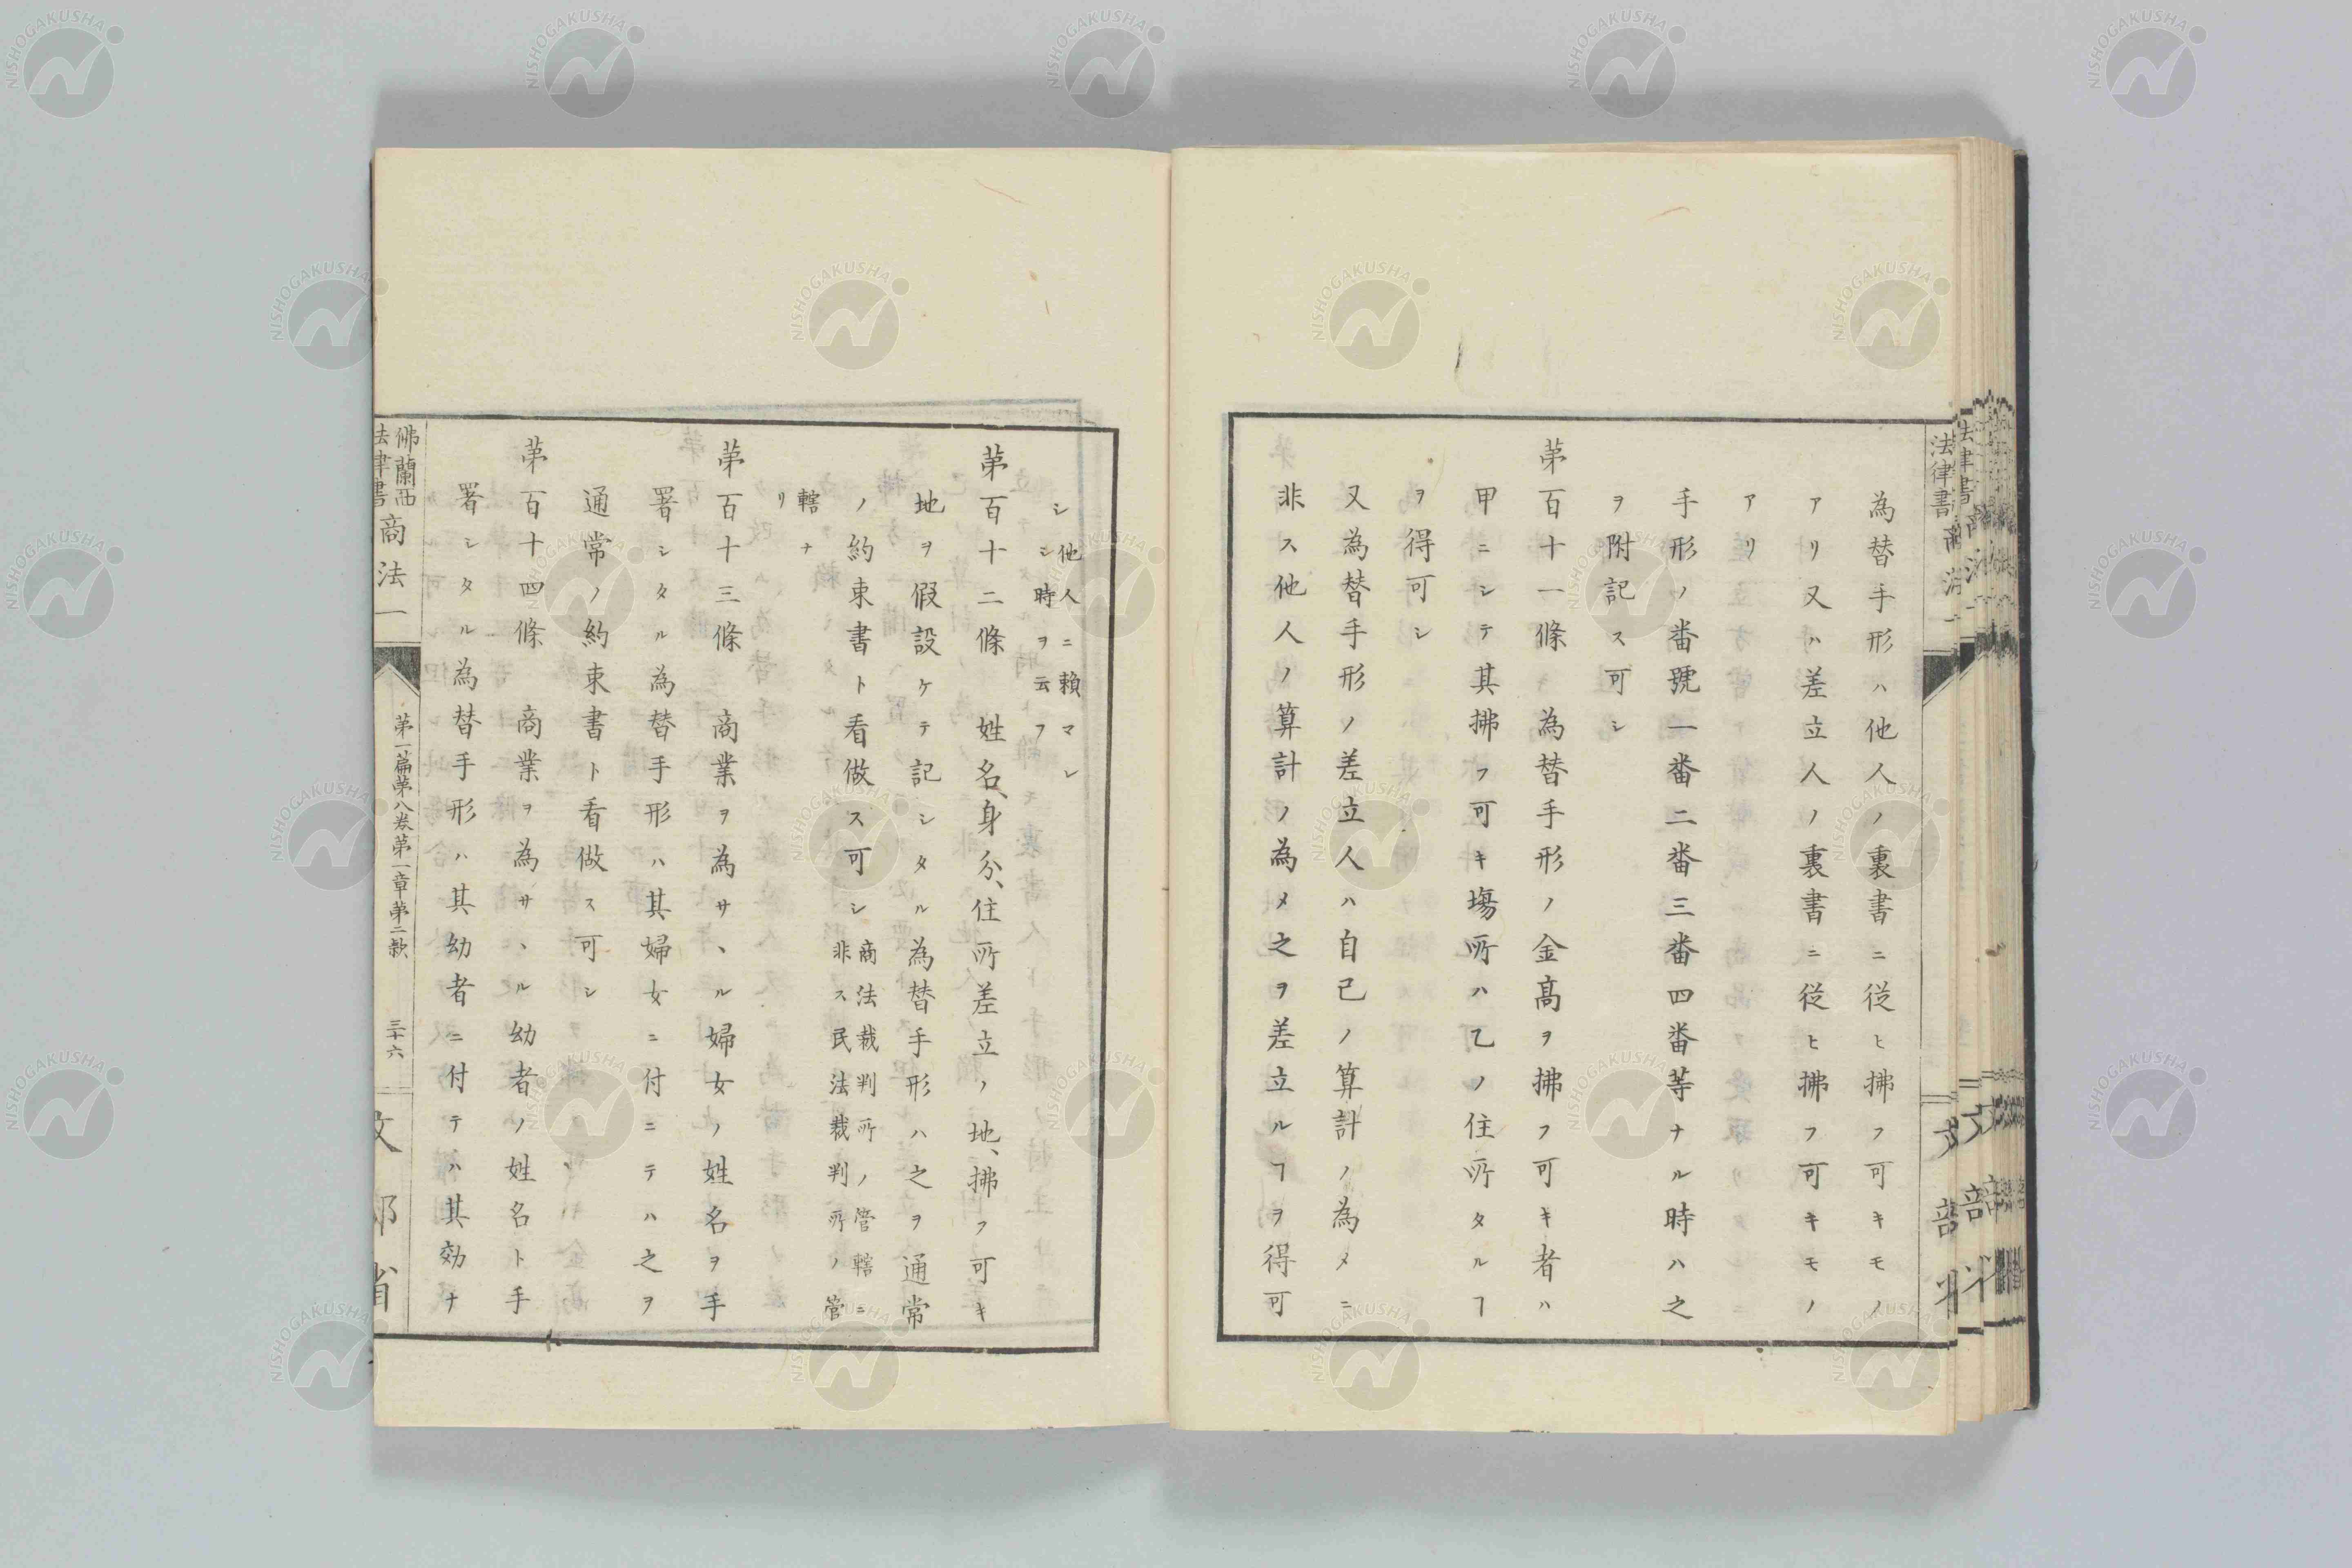 為替手形ハ他人ノ裏書ニ從ヒ拂フ可キモノ
アリ又ハ差立人ノ裏書ニ從ヒ拂フ可キモノ
アリ
手形ノ番號一番二番三番四番等ナル時ハ之
ヲ附記ス可シ
第百十一條 為替手形ノ金高ヲ拂フ可キ者ハ
甲ニシテ其拂フ可キ塲所ハ乙ノ住所タルヿ
ヲ得可シ
又為替手形ノ差立人ハ自己ノ算計ノ為メニ
非ス他人ノ算計ノ為メ之ヲ差立ルヿヲ得可
シ他人ニ賴マレ
シ時ヲ云フ
第百十二條 姓名、身分、住所差立ノ地、拂フ可キ
地ヲ假設ケテ記シタル為替手形ハ之ヲ通常
ノ約束書ト看做ス可シ商法裁判所ノ管轄ニ
非ス民法裁判所ノ管
轄ナ
リ
第百十三條 商業ヲ為サヽル婦女ノ姓名ヲ手
署シタル為替手形ハ其婦女ニ付ニテハ之ヲ
通常ノ約束書ト看做ス可シ
第百十四條 商業ヲ為サヽル幼者ノ姓名ト手
署シタル為替手形ハ其幼者ニ付テハ其効ナ
佛蘭西
法律書 商法 一
第一篇第八卷第一章第二款
三十六
文部省
NISHOGAKUSHA